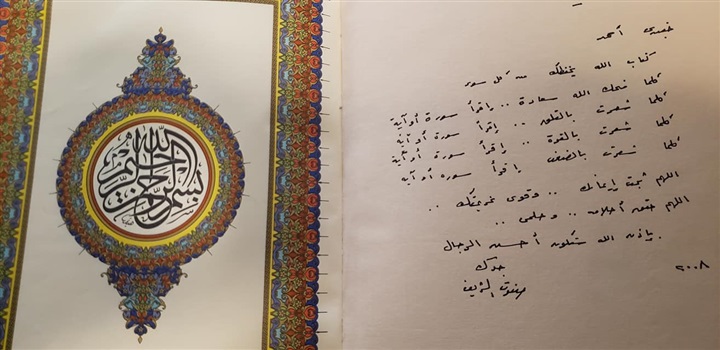 بسم الله الرحمن الرحيم
حبيبي أحمد
كتاب الله يحفظك من كل سوء
كلما منحك الله سعادة .. إقرأ سورة أو آية
كلما شعرت بالقلق .. إقرأ سورة أو آية
كلما شعرت بالقوة .. إقرأ سورة أو آية
كلما شعرت بالضعف إقرأ سورة أو آية
اللهم ثبت إيمانك .. وقوى عزيمتك ..
اللهم حقق أحلامه .. وحلمى ..
بإذن الله ستكون أحسن الرجال
جدك
صفوت الشريف
٢٠٠٨